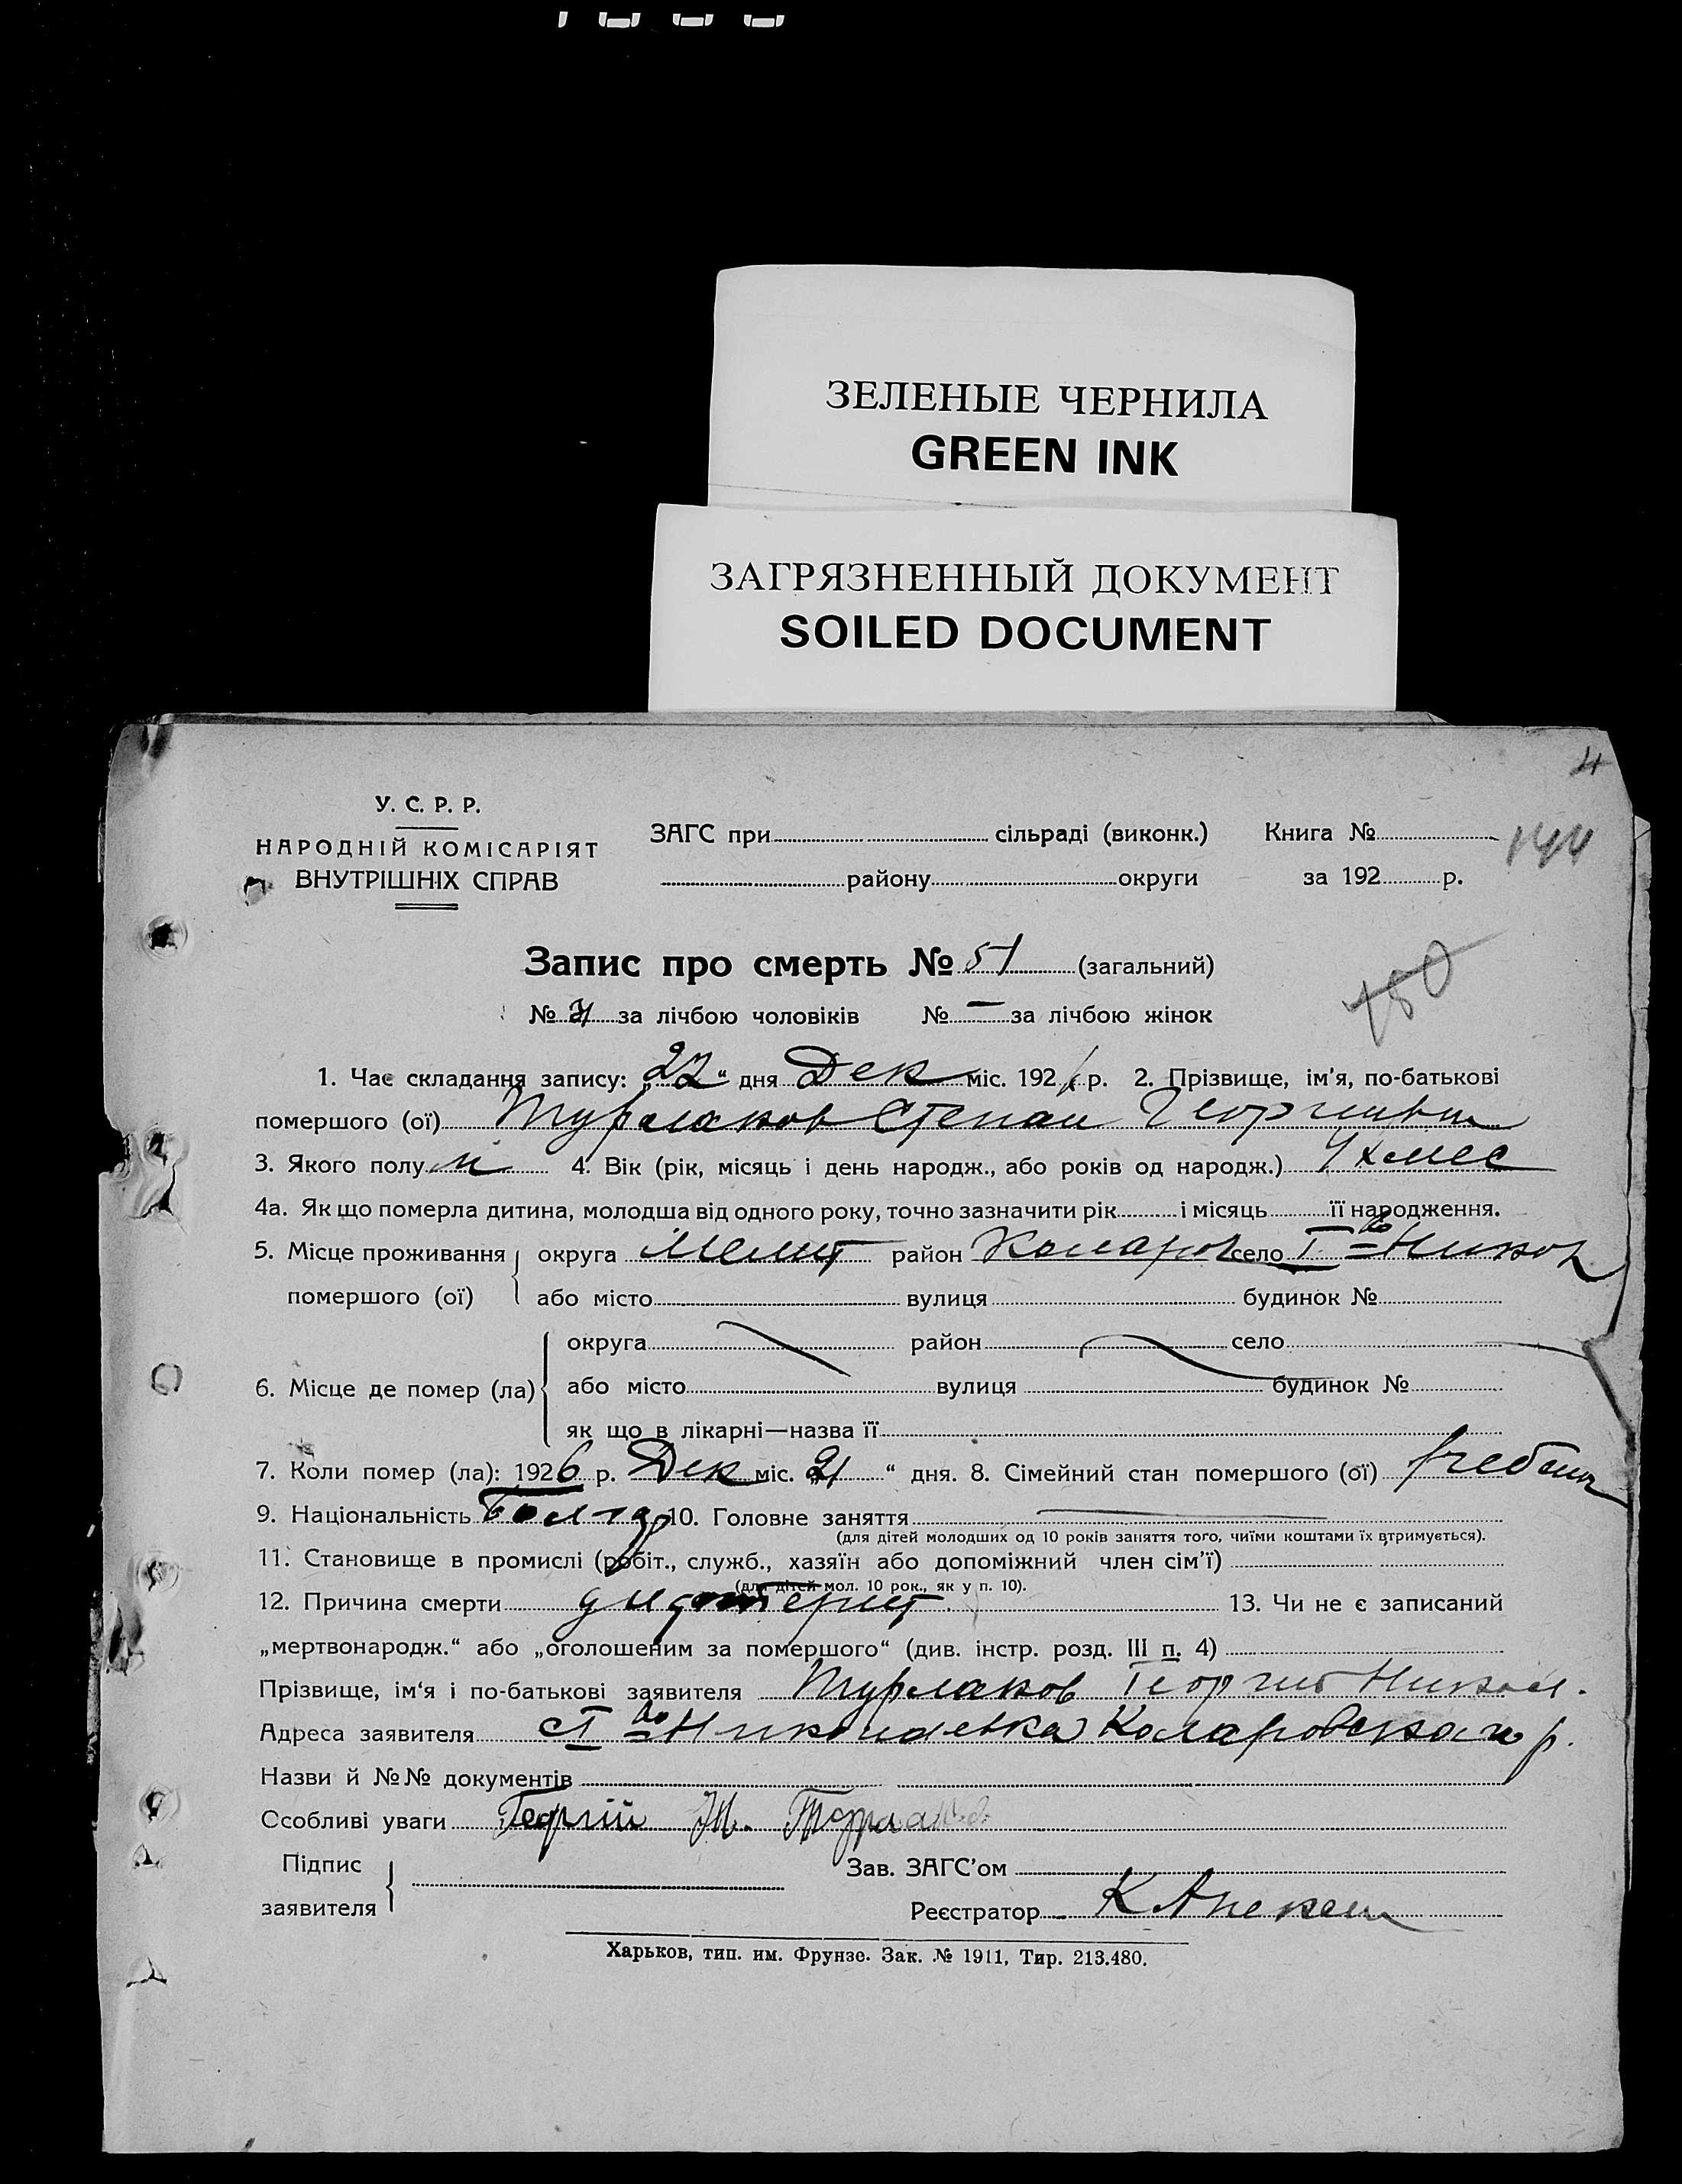 ЗЕЛЕНЫЕ ЧЕРНИЛА
GREEN INK
ЗАГРЯЗНЕННЫЙ ДОКУМЕНТ
SOILED DOCUMENT
4
У. С. Р. Р.
НАРОДНІЙ КОМІСАРІЯТ
ВНУТРІШНІХ СПРАВ
ЗАГС при сільраді (виконк.) Книга № 144
району округи за 192 р.
Запис про смерть № 51 (загальний)
180
№ за лічбою чоловіків № — за лічбою жінок
1. Час складання запису: „22“ дня Дек міс. 192 р. 2. Прізвище, ім'я, по-батькові
помершого (ої) Турлаков Степан Георгиевич
3. Якого полу м 4. Вік (рік, місяць і день народж., або років од народж.) 4х мес
4а. Як що померла дитина, молодша від одного року, точно зазначити рік і місяць її народження.
5. Місце проживання округа Мелит район Коларов село І ая Никол
помершого (ої) або місто вулиця будинок №
округа район село
6. Місце де помер (ла) або місто вулиця будинок №
як що в лікарні—назва її
7. Коли помер (ла): 1926 р. Дек міс. „21“ дня. 8. Сімейний стан помершого (ої) ребенок
9. Національність Болгар 10. Головне заняття
(для дітей молодших од 10 років заняття того, чиїми коштами їх втримується).
11. Становище в промислі (робіт., служб., хазяїн або допоміжний член сім'ї)
(для дітей мол. 10 рок., як у п. 10).
12. Причина смерти дифтерит. 13. Чи не є записаний
„мертвонародж.“ або „оголошеним за помершого“ (див. інстр. розд. III п. 4)
Прізвище, ім'я і по-батькові заявителя Турлаков Георгий Никол.
Адреса заявителя с І ая Николаевка Коларовского р.
Назви й №№ документів
Особливі уваги Георгій Н. Турлаков
Підпис
заявителя
Зав. ЗАГС'ом
Реєстратор К
Харьков, тип. им. Фрунзе. Зак. № 1911, Тир. 213.480.